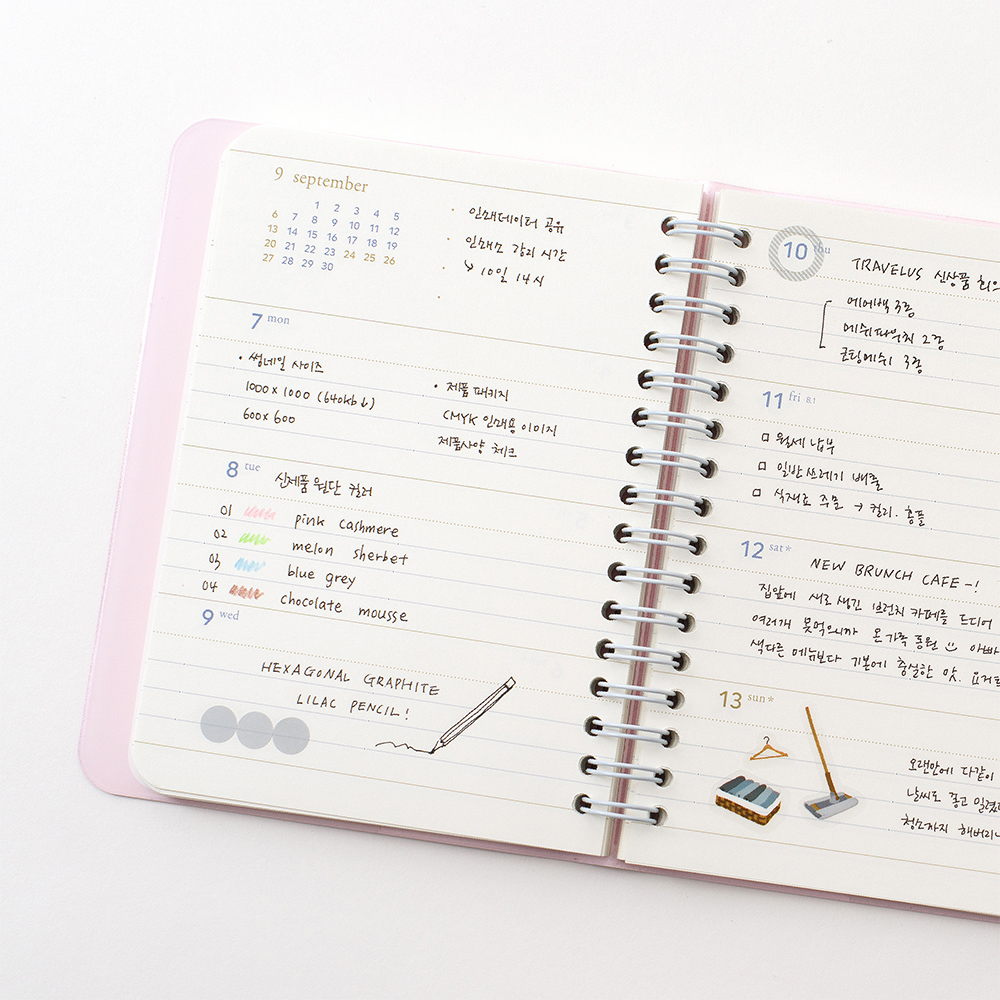 9 september
1 2 3 4 5
6 7 8 9 10 11 12
13 14 15 16 17 18 19
20 21 22 23 24 25 26
27 28 29 30
· 인쇄데이터 공유
· 인쇄소 감리 시간
↳ 10일 14시
7 mon
· 썸네일 사이즈
1000 x 1000 (640kb↓)
600 x 600
· 제품 패키지
CMYK 인쇄용 이미지
제품사양 체크
8 tue
신제품 원단 컬러
01 pink cashmere
02 melon sherbet
03 blue grey
04 chocolate mousse
9 wed
HEXAGONAL GRAPHITE
LILAC PENCIL!
10 thu
TRAVELUS 신상품 회의
에어백 3종
메쉬파우치 2종
코팅메쉬 3종
11 fri 8.1
□ 월세 납부
□ 일반쓰레기 배출
□ 식재료 주문 → 컬리. 홈플
12 sat*
NEW BRUNCH CAFE-!
집앞에 새로 생긴 브런치 카페를 드디어
여러개 못먹으니까 온가족 동원 아빠
색다른 메뉴보다 기본에 충실한 맛. 요거트
13 sun*
오랜만에 다같이
날씨도 좋고 일찍
청소까지 해버리